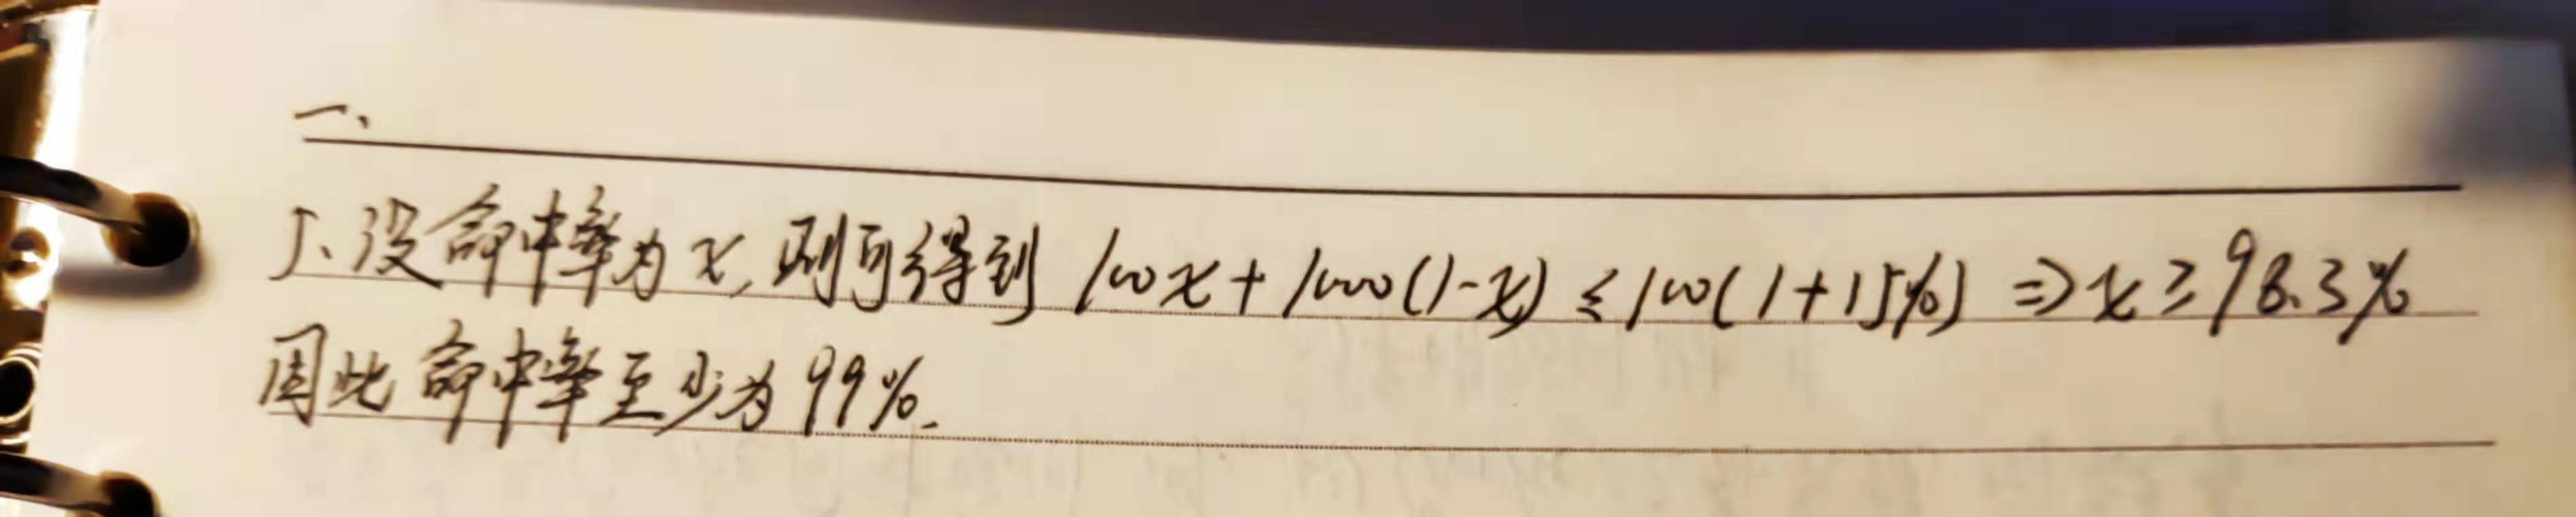 一、
1、设命中率为x,则可得到 100x+1000(1-x)≤100(1+15%) ⇒x≥98.3%
因此命中率至少为99%.